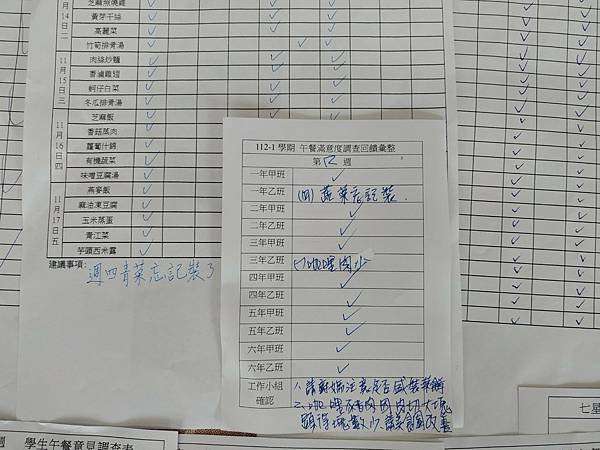 月
14
日
二
芝麻燒雞
黃芽干絲
高麗菜
竹筍排骨湯
11
月
15
日
三
肉絲炒麵
香滷雞翅
蚵仔白菜
冬瓜排骨湯
11
月
16
日
四
芝麻飯
香菇蒸肉
蘿蔔什錦
有機蔬菜
味噌豆腐湯
11
月
17
日
五
燕麥飯
麻油凍豆腐
玉米蒸蛋
青江菜
芋頭西米露
建議事項:
週四青菜忘記裝了
112-1 學期 午餐滿意度調查回饋彙整
第 12 週
一年甲班
一年乙班 (四) 蔬菜忘記裝.
二年甲班
二年乙班
三年甲班
三年乙班
四年甲班
四年乙班
五年甲班
五年乙班
六年甲班
六年乙班
工作小組
確認
1. 請廚媽注意是否盛裝
週 學生午餐意見調查表
七星